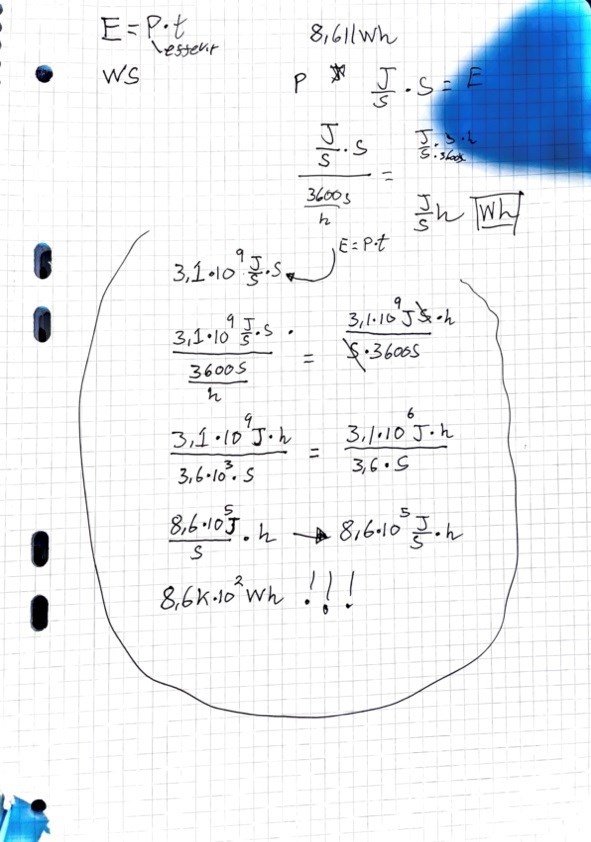 E = P·t
8,611Wh
WS
P J/S · S = E
J/S · S / 3600s/h =
J/S h Wh
3,1·10^9 J/S · S
E = P·t
3,1·10^9 J/S · S / 3600S/h = 3,1·10^9 J S · h / S · 3600S
3,1·10^9 J·h / 3,6·10^3 · S = 3,1·10^6 J·h / 3,6 · S
8,6·10^5 J / S · h → 8,6·10^5 J/S · h
8,6K·10^2 Wh !!!